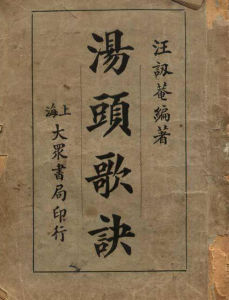 汪訒菴編著
湯頭歌訣
上海大眾書局印行